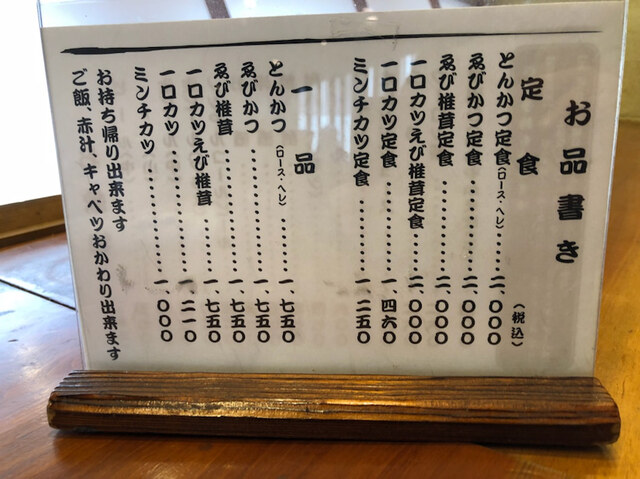 お品書き
定食
(税込)
とんかつ定食(ロース・ヘレ)……二、〇〇〇
ゑびかつ定食……二、〇〇〇
ゑび椎茸定食……二、〇〇〇
一口カツえび椎茸定食……二、〇〇〇
一口カツ定食……一、四六〇
ミンチカツ定食……一、二五〇
一品
とんかつ(ロース・ヘレ)……一、七五〇
ゑびかつ……一、七五〇
ゑび椎茸……一、七五〇
一口カツえび椎茸……一、七五〇
一口カツ……一、二一〇
ミンチカツ……一、〇〇〇
お持ち帰り出来ます
ご飯、赤汁、キャベツおかわり出来ます